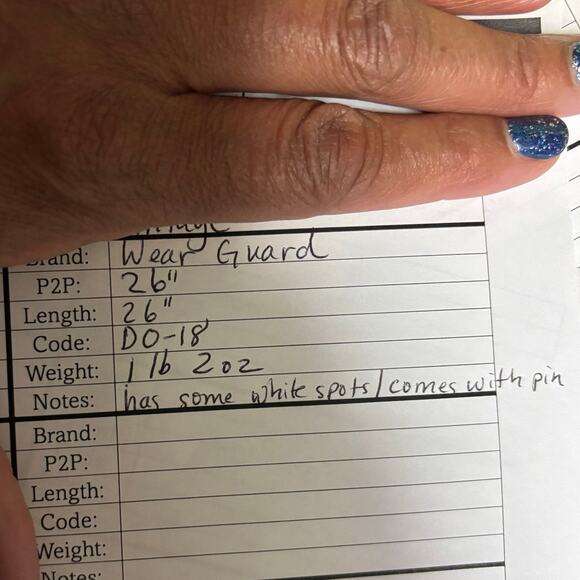 Brand: Wear Guard
P2P: 26"
Length: 26"
Code: DO-18
Weight: 1 lb 2 oz
Notes: has some white spots/comes with pin
Brand:
P2P:
Length:
Code:
Weight:
Notes: